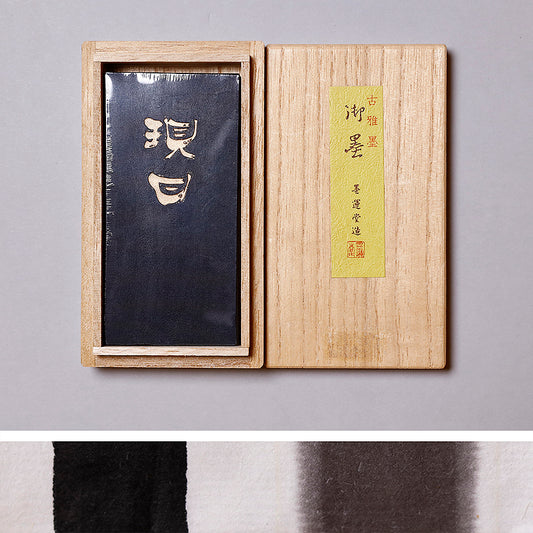 現
日
古雅墨
御墨
墨運堂造